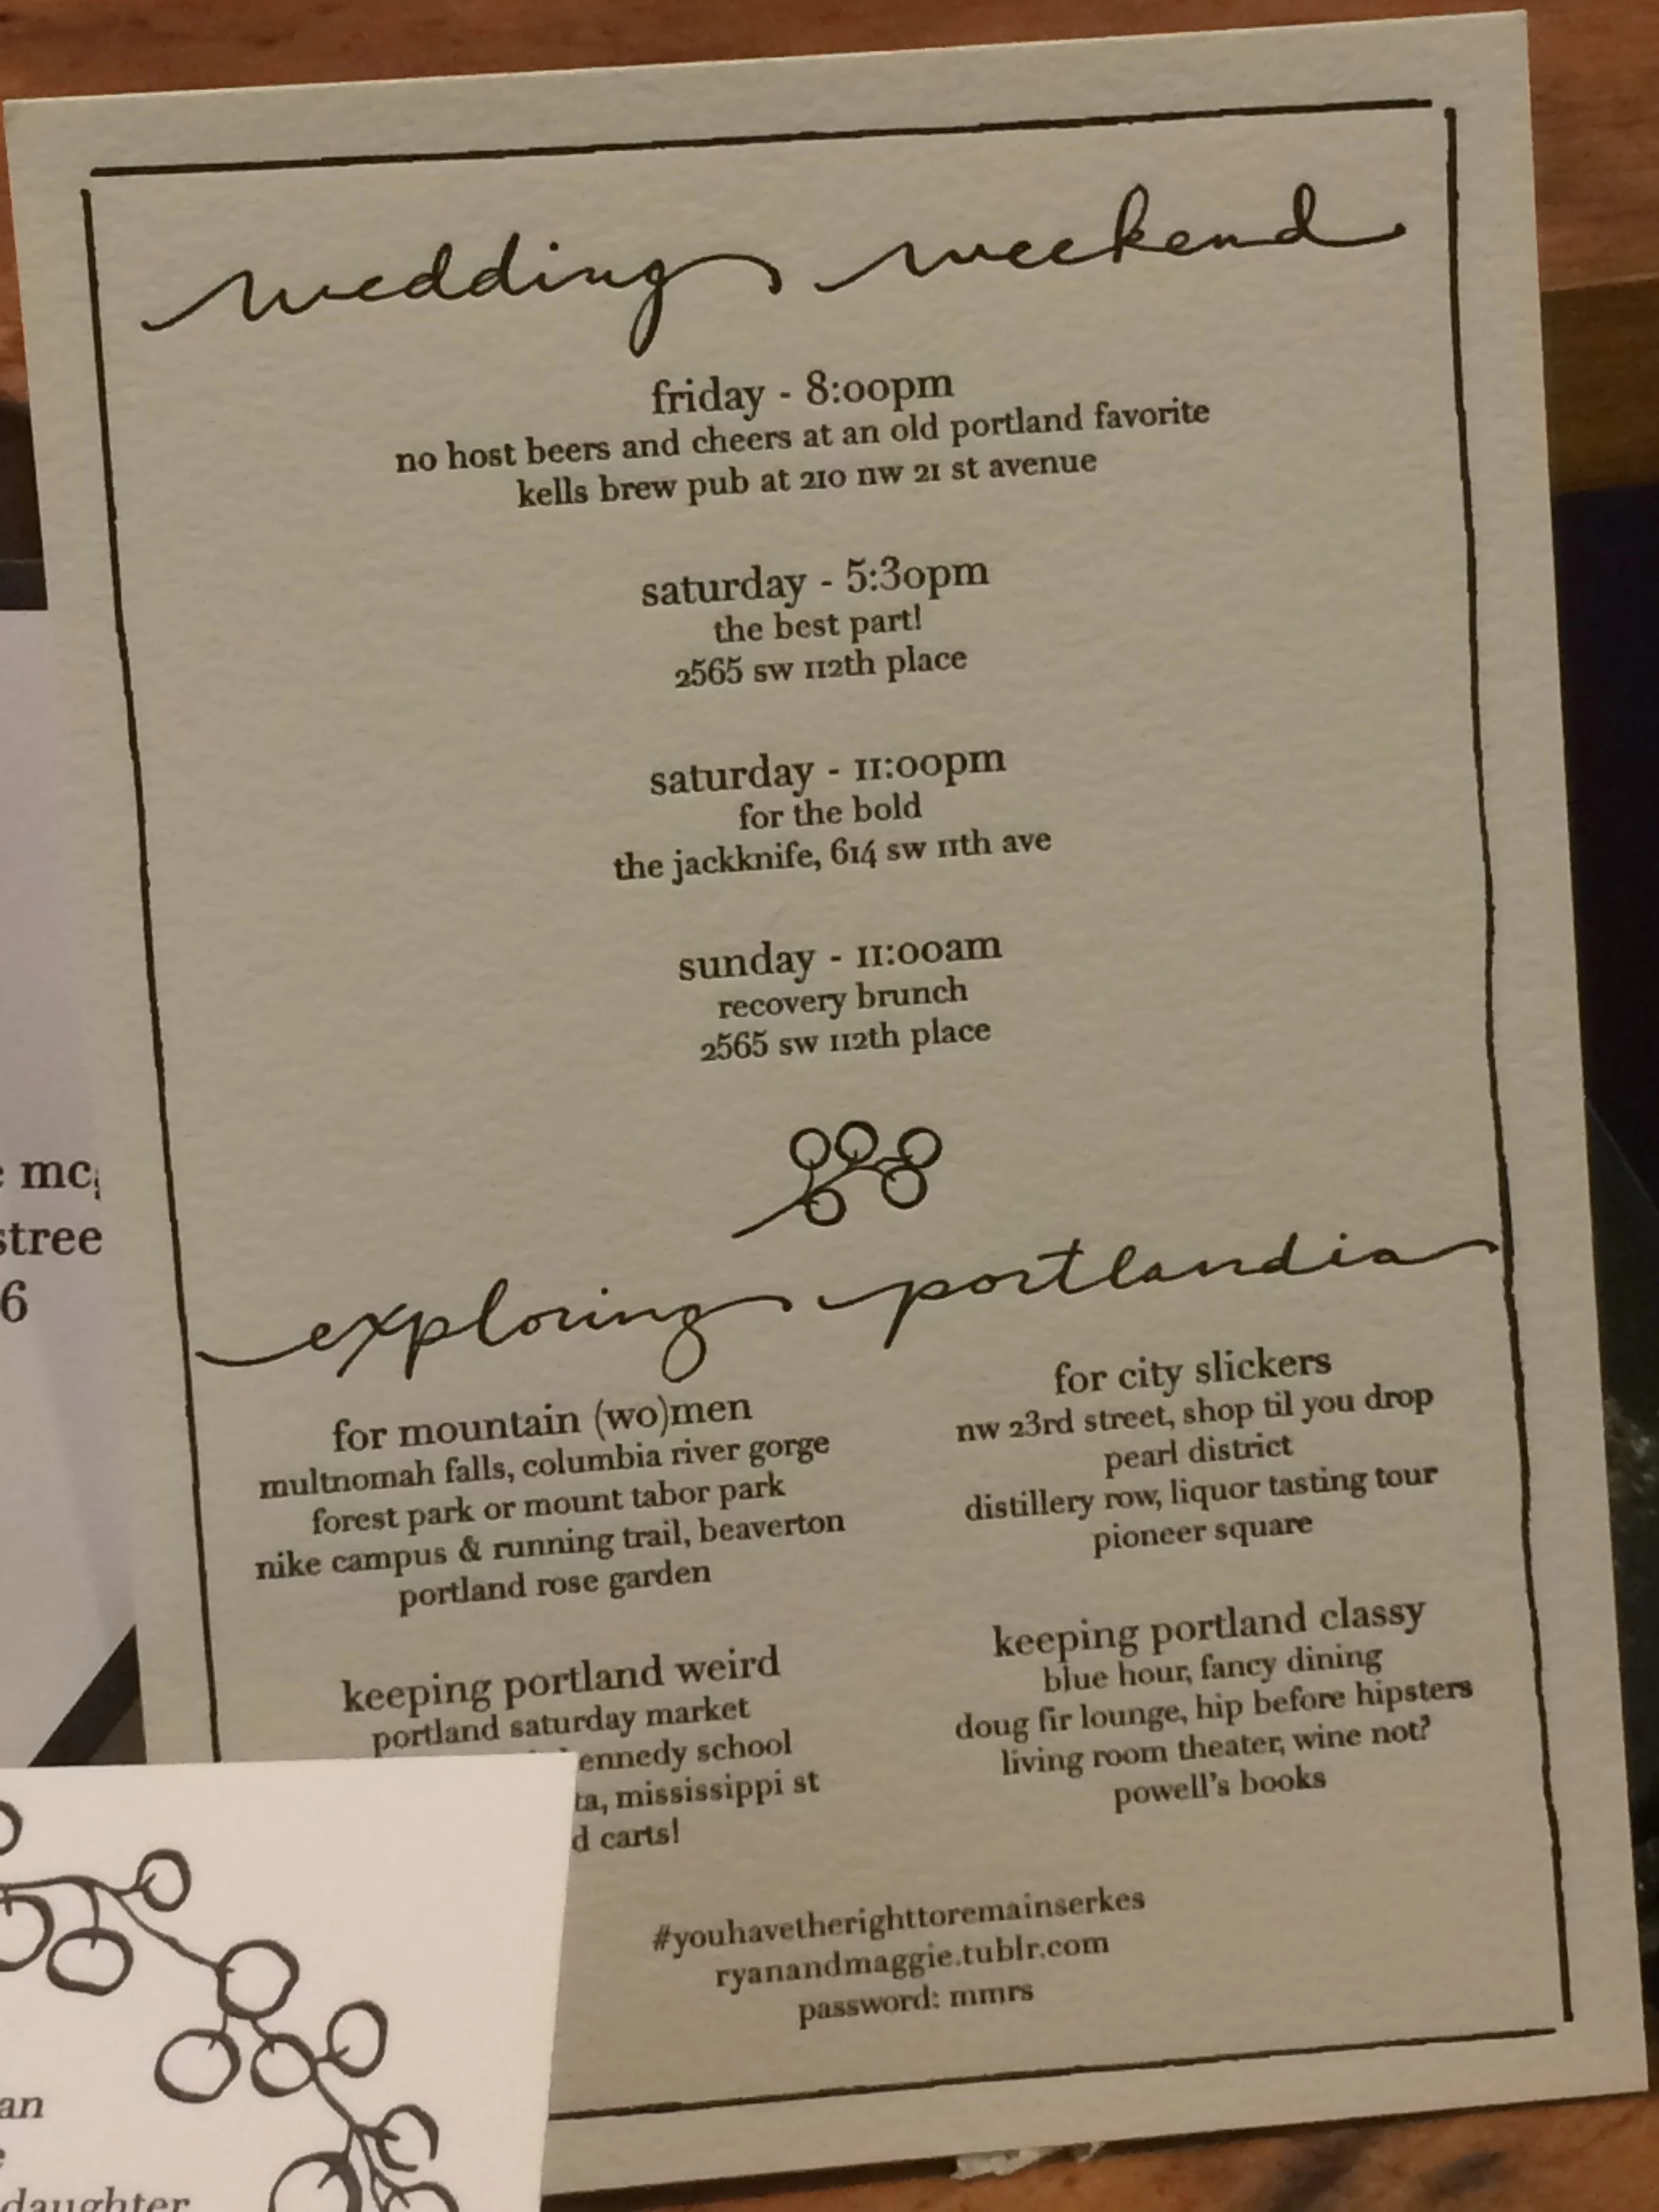 wedding weekend
friday - 8:00pm
no host beers and cheers at an old portland favorite
kells brew pub at 210 nw 21 st avenue
saturday - 5:30pm
the best part!
2565 sw 112th place
saturday - 11:00pm
for the bold
the jackknife, 614 sw 11th ave
sunday - 11:00am
recovery brunch
2565 sw 112th place
exploring portlandia
for mountain (wo)men
multnomah falls, columbia river gorge
forest park or mount tabor park
nike campus & running trail, beaverton
portland rose garden
for city slickers
nw 23rd street, shop til you drop
pearl district
distillery row, liquor tasting tour
pioneer square
keeping portland weird
portland saturday market
school
mississippi st
carts!
keeping portland classy
blue hour, fancy dining
doug fir lounge, hip before hipsters
living room theater, wine not?
powell's books
#youhavetherighttoremainserkes
ryanandmaggie.tublr.com
password: mmrs
6
daughter